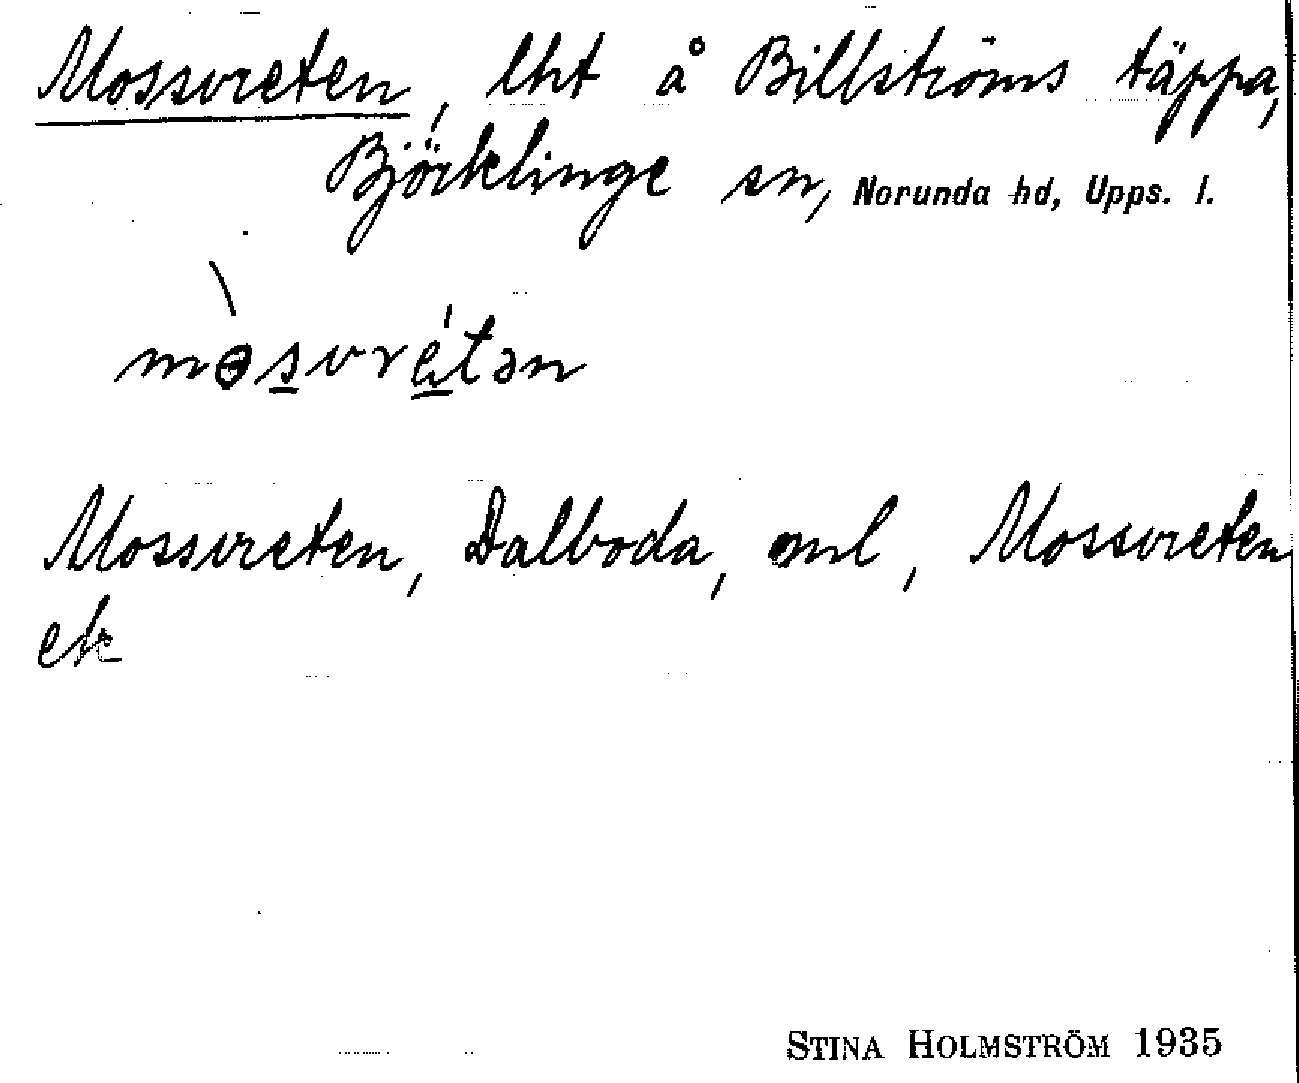 Mossvreten, lht å Billströms täppa,
Björklinge sn, Norunda hd, Upps. l.
mɵ̀svrétən
Mossvreten, Dalboda, oml, Mossvreten
ek
STINA HOLMSTRÖM 1935